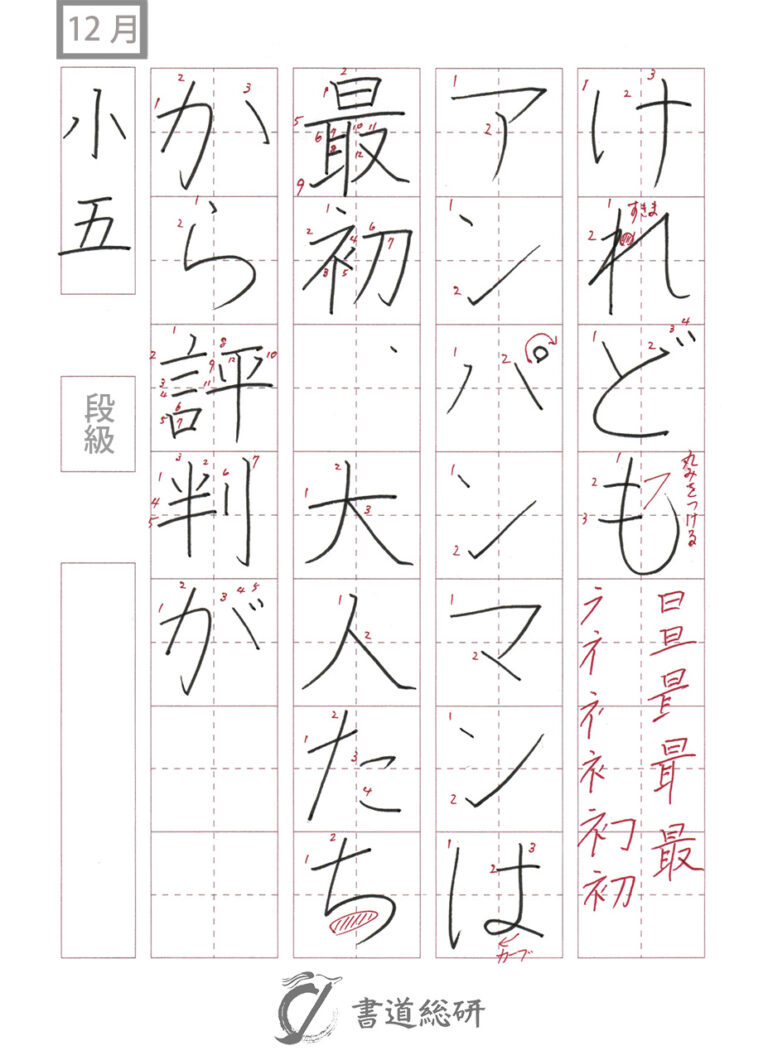 12月
けれども
アンパンマンは
最初、大人たち
から評判が
小五
段級
すきま
丸みをつける
カーブ
最
初
書道総研